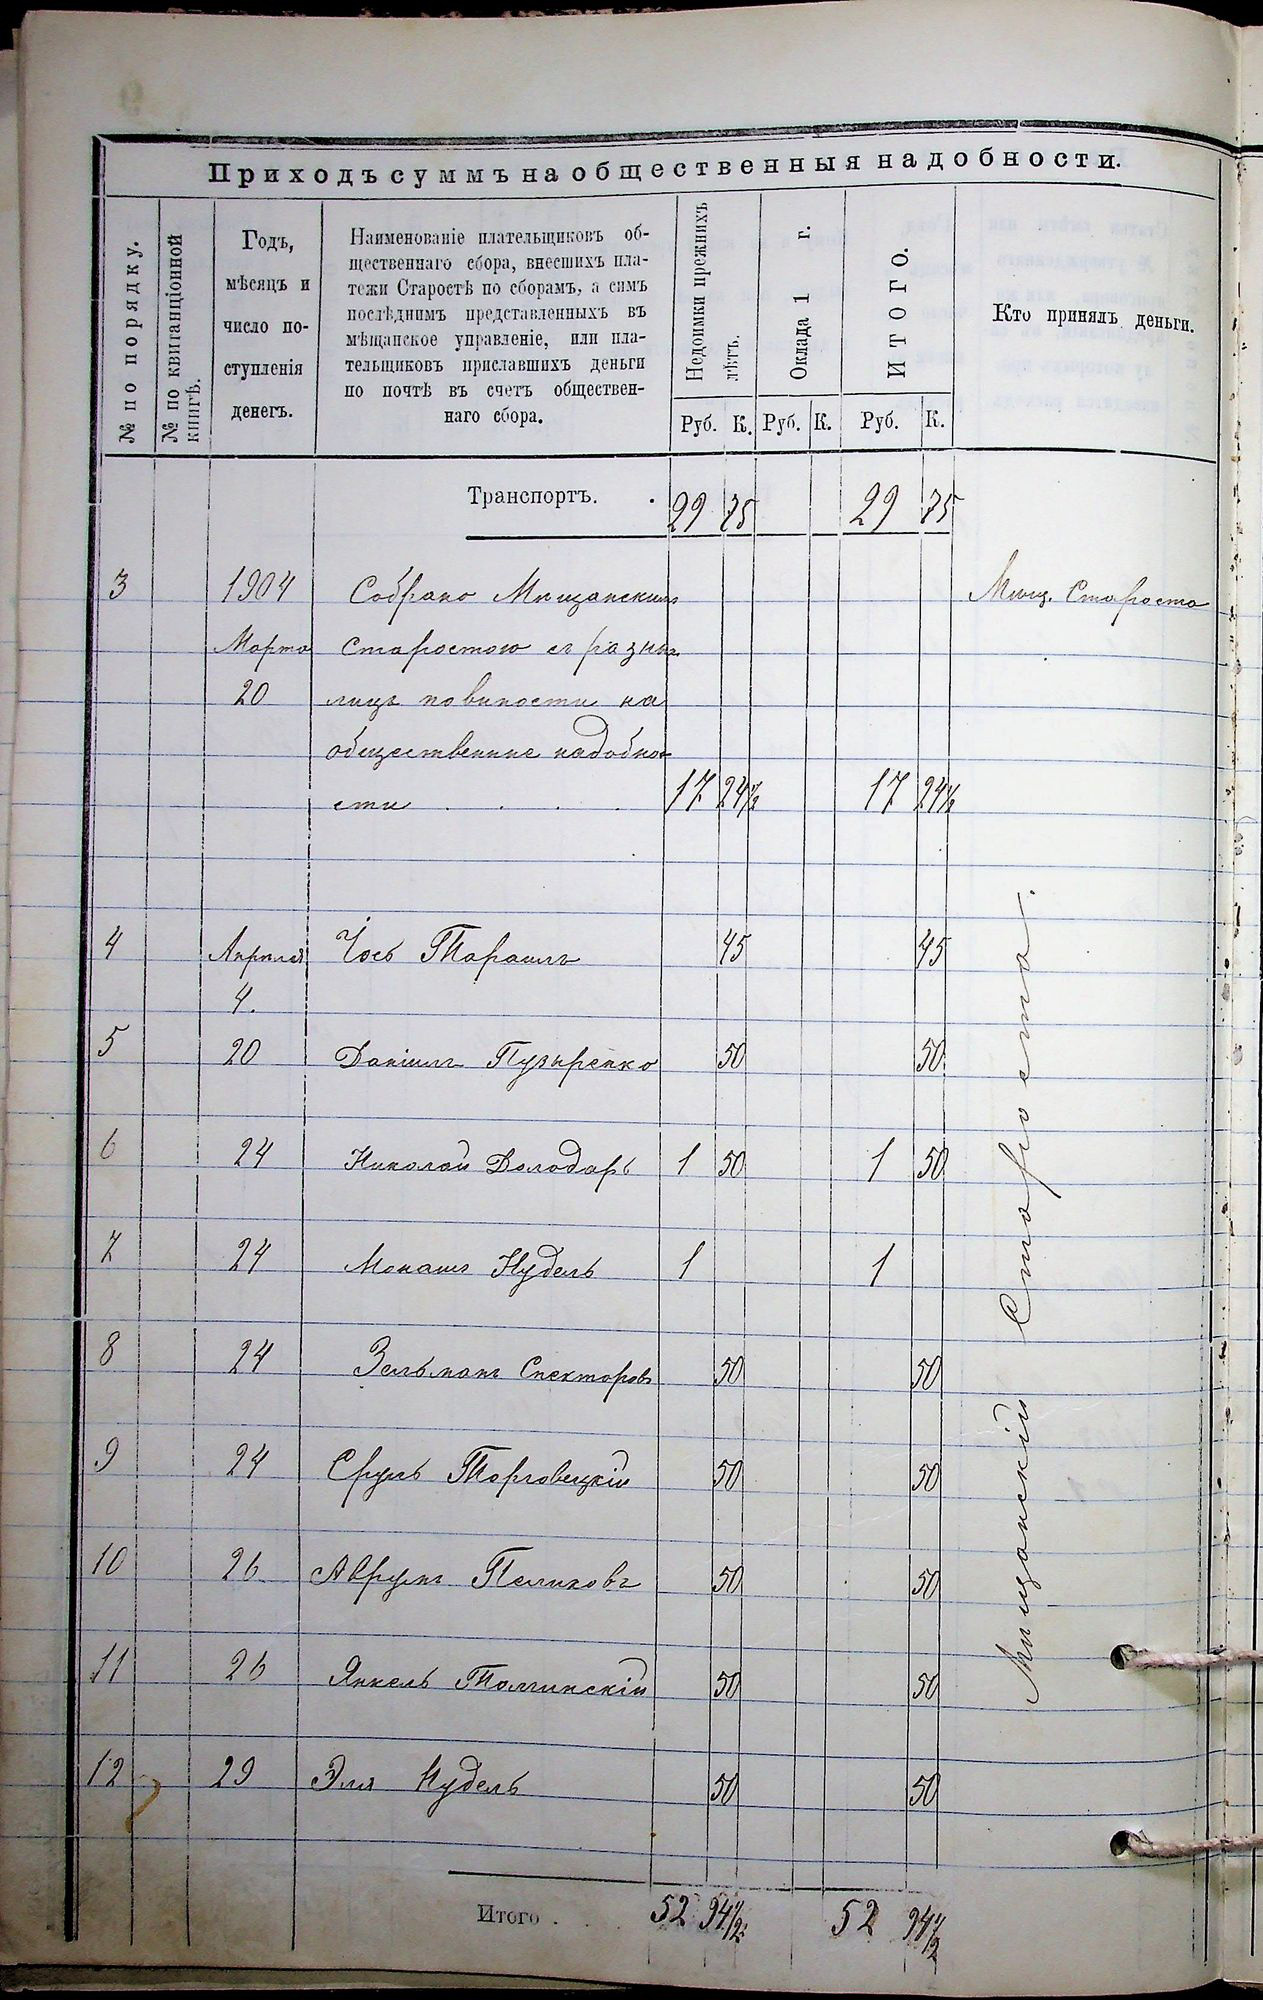 Приходъ суммъ на общественныя надобности.
№ по порядку.
№ по квитанціонной
книгѣ.
Годъ,
мѣсяцъ и
число по-
ступленія
денегъ.
Наименованіе плательщиковъ об-
щественнаго сбора, внесшихъ пла-
тежи Старостѣ по сборамъ, а симъ
послѣднимъ представленныхъ въ
мѣщанское управленіе, или пла-
тельщиковъ приславшихъ деньги
по почтѣ въ счетъ обществен-
наго сбора.
Недоимки прежнихъ
лѣтъ.
Оклада 1 г.
Итого.
Кто принялъ деньги.
Руб. К. Руб. К. Руб. К.
Транспортъ. . 29 75 29 75
3 1904 Собрано Мѣщанскимъ Мѣщ. Староста
Марта Старостою съ разныхъ
20 лицъ повиности на
общественные надобно-
сти . . . . 17 24½ 17 24½
4 Апрѣля 45 45
4.
5 20 Даніилъ Пузыренко 50 50
6 24 Николай Володарь 1 50 1 50
7 24 Монашъ Нудель 1 1
8 24 Зельманъ Спекторовъ 50 50
9 24 Сруль Торговецкій 50 50
10 26 Аврумъ Пеликовъ 50 50
11 26 Янкель Толчинскій 50 50
12 29 Эля Нудель 50 50
Мѣщанскій Староста.
Итого . . 52 94½ 52 94½